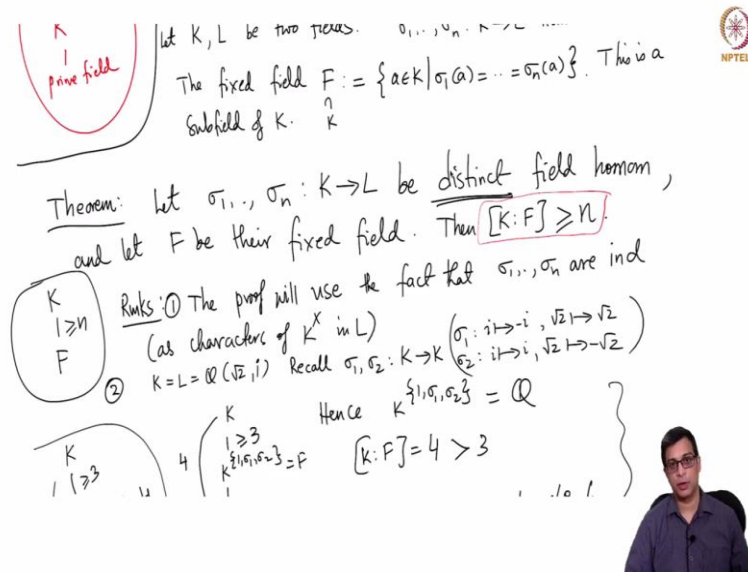 K
|
prime field
let K, L be two fields. σ₁,..,σₙ : K→L
The fixed field F := {a∈K | σ₁(a)=··=σₙ(a)}. This is a
subfield of K.
∩
K
NPTEL
Theorem: Let σ₁,.., σₙ : K→L be distinct field homom,
and let F be their fixed field. Then [K:F] ≥ n.
K
| ≥n
F
Rmks: ① The proof will use the fact that σ₁,..,σₙ are ind
(as characters of K^× in L)
② K=L=ℚ(√2, i) Recall σ₁,σ₂ : K→K (σ₁: i↦-i, √2↦√2
σ₂: i↦i, √2↦-√2)
Hence K^{1,σ₁,σ₂} = ℚ
4 ( K
| ≥3
K^{1,σ₁,σ₂}=F
[K:F]=4 > 3
K
| ≥3